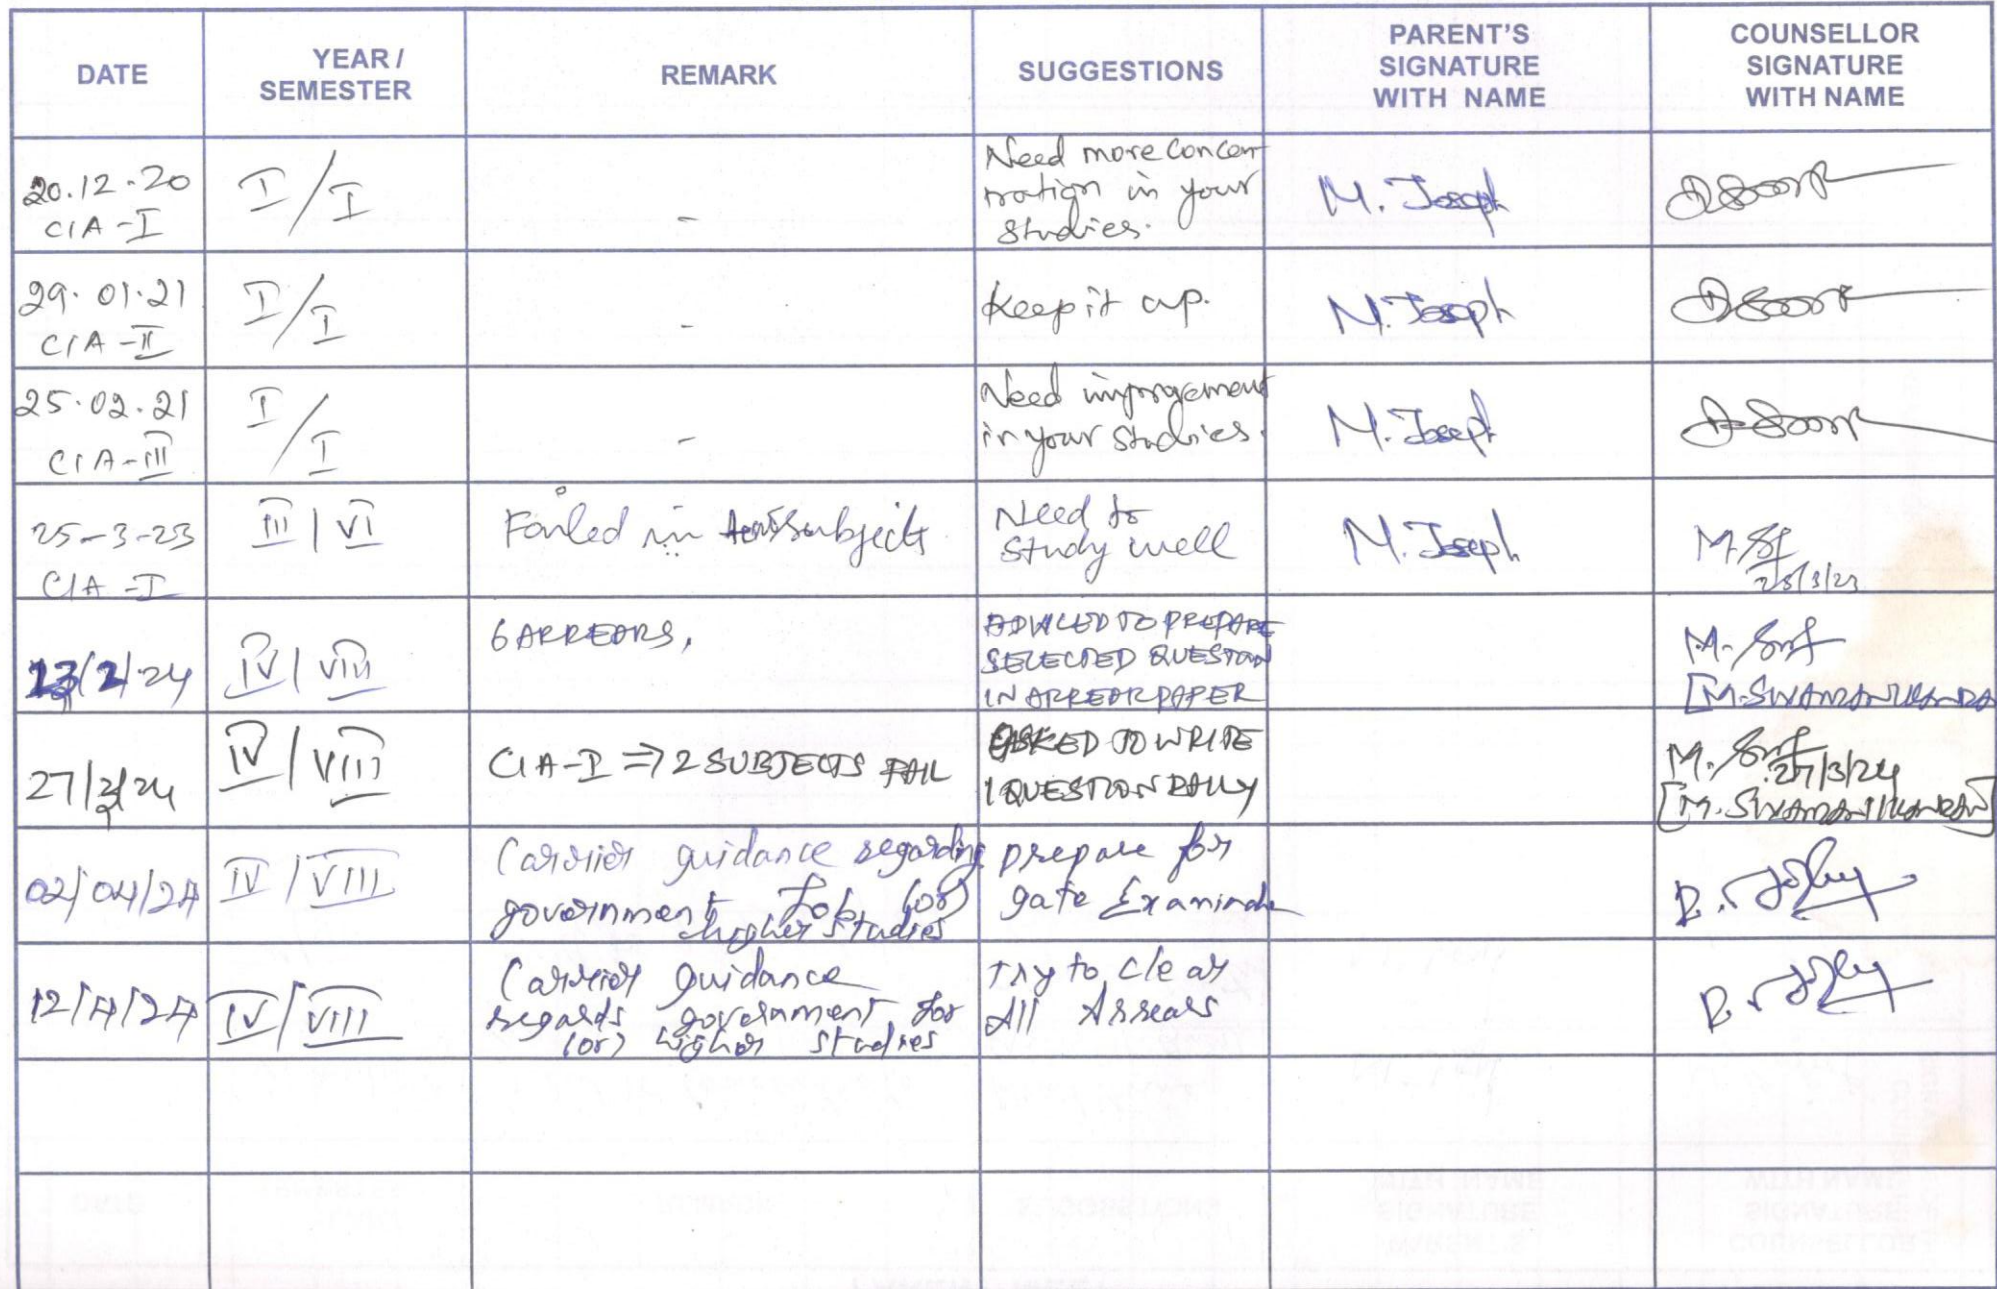 DATE
YEAR /
SEMESTER
REMARK
SUGGESTIONS
PARENT'S
SIGNATURE
WITH NAME
COUNSELLOR
SIGNATURE
WITH NAME
20.12.20
CIA-I
I/I
-
Need more concen
tration in your
studies.
M. Joseph
29.01.21
CIA-II
I/I
-
Keep it up.
M. Joseph
25.02.21
CIA-III
I/I
-
Need improvement
in your studies.
M. Joseph
25-3-23
CIA-I
III|VI
Failed in subjects
Need to
study well
M. Joseph
25/3/23
/2/24
IV|VIII
6 ARREARS,
ADVICED TO PREPARE
SELECTED QUESTION
IN ARREAR PAPER
[M.SIVAMANIKANDA
27/3/24
IV/VIII
CIA-I => 2 SUBJECTS FAIL
ASKED TO WRITE
1 QUESTION DAILY
27/3/24
[M.SIVAMANIKANDAN]
02/04/24
IV/VIII
Carrier guidance regarding
government Job (or)
higher studies
prepare for
gate
12/4/24
IV/VIII
Carrier guidance
regards government
(or) higher studies
try to clear
All Arrears